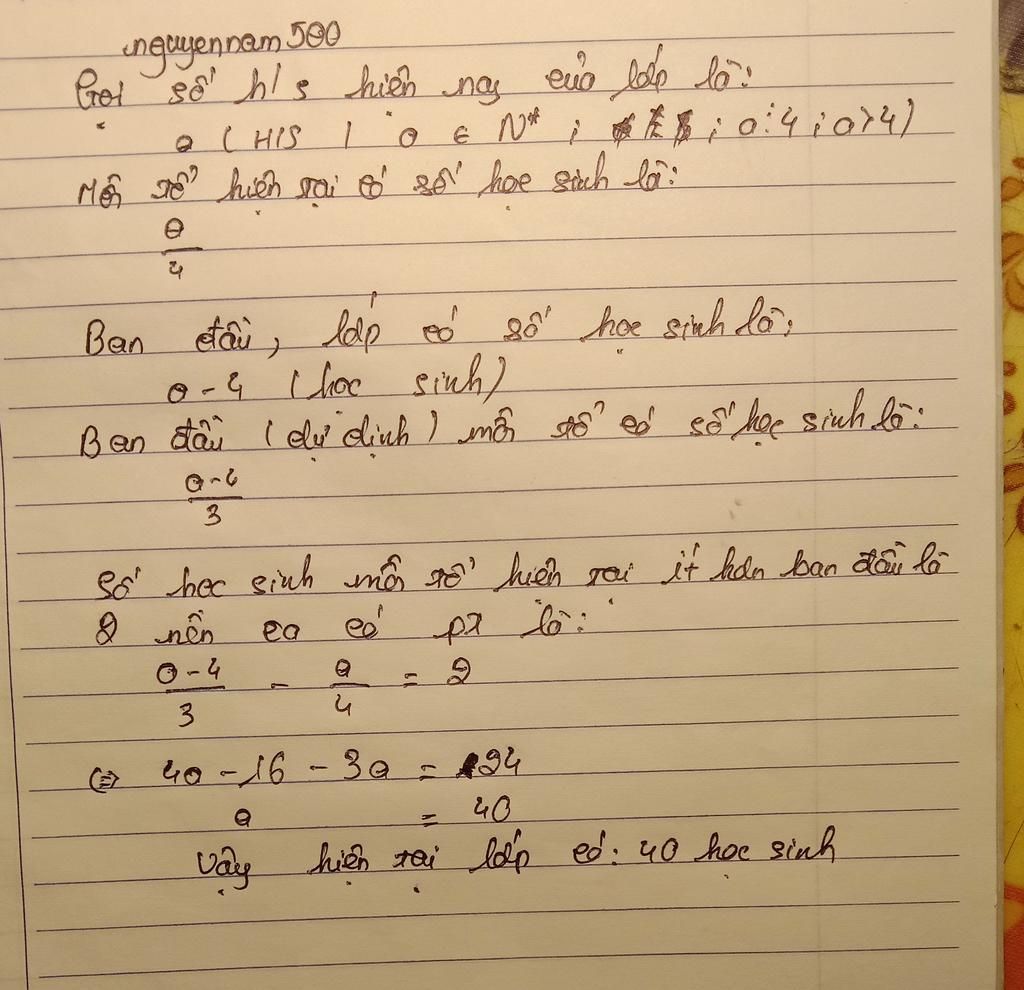 nguyennam500
Gọi số h/s hiện nay của lớp là:
a (H/S | a ∈ N* ; ; a⋮4 ; a>4)
Mỗi tổ hiện tại có số học sinh là:
a/4
Ban đầu, lớp có số học sinh là:
a-4 (học sinh)
Ban đầu (dự định) mỗi tổ có số học sinh là:
a-4/3
Số học sinh mỗi tổ hiện tại ít hơn ban đầu là
2 nên ta có pt là:
a-4/3 - a/4 = 2
⇔ 4a - 16 - 3a = 24
a = 40
Vậy hiện tại lớp có: 40 học sinh